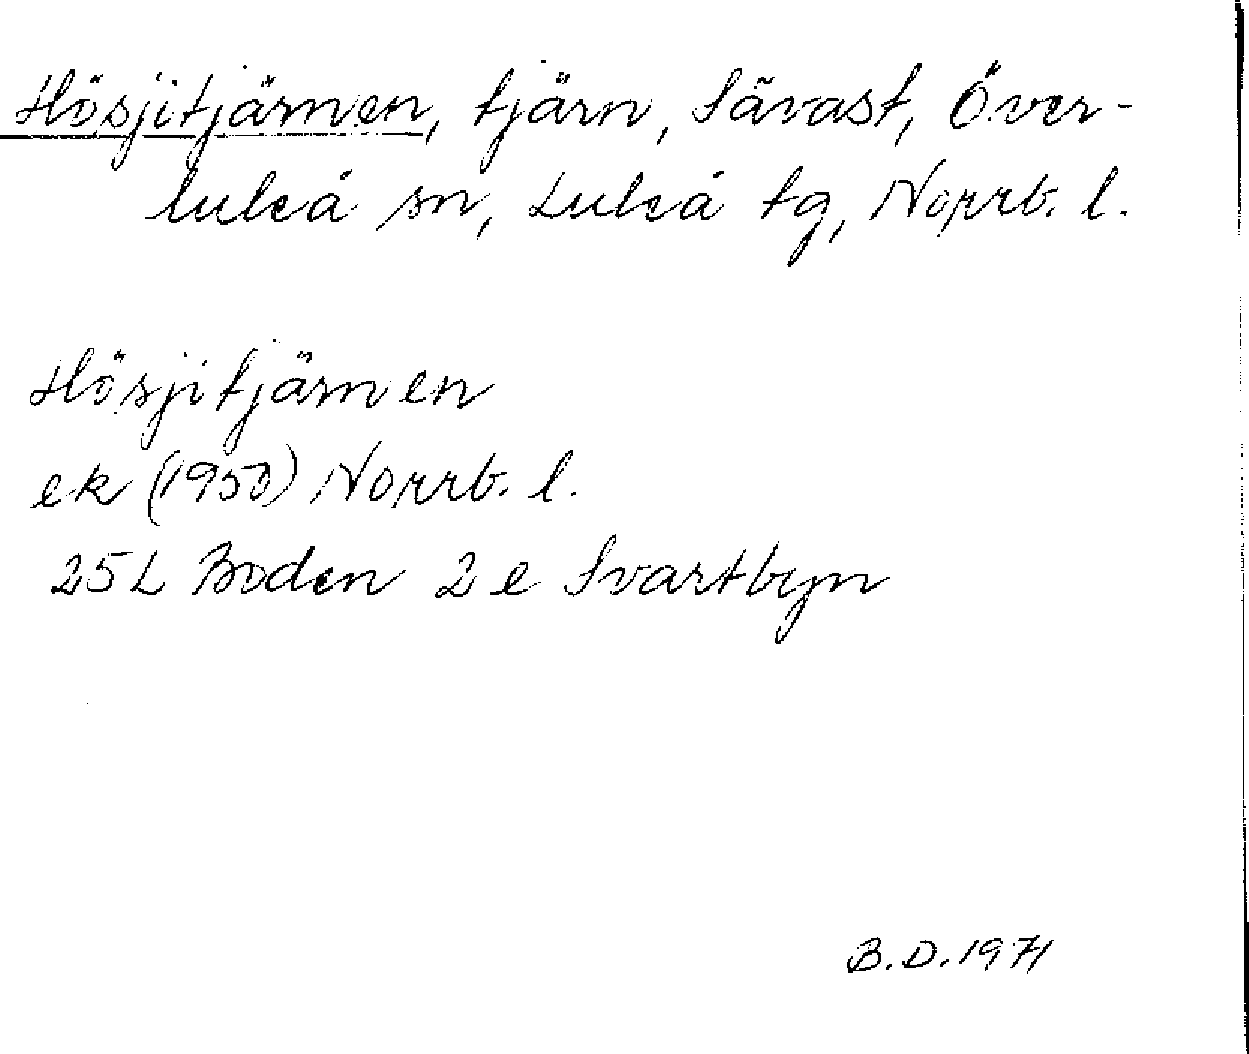 Hösjitjärnen, tjärn, Sävast, Över-
luleå sn, Luleå tg, Norrb. l.
Hösjitjärnen
ek (1950) Norrb. l.
25L Boden 2e Svartbyn
B.D. 1971